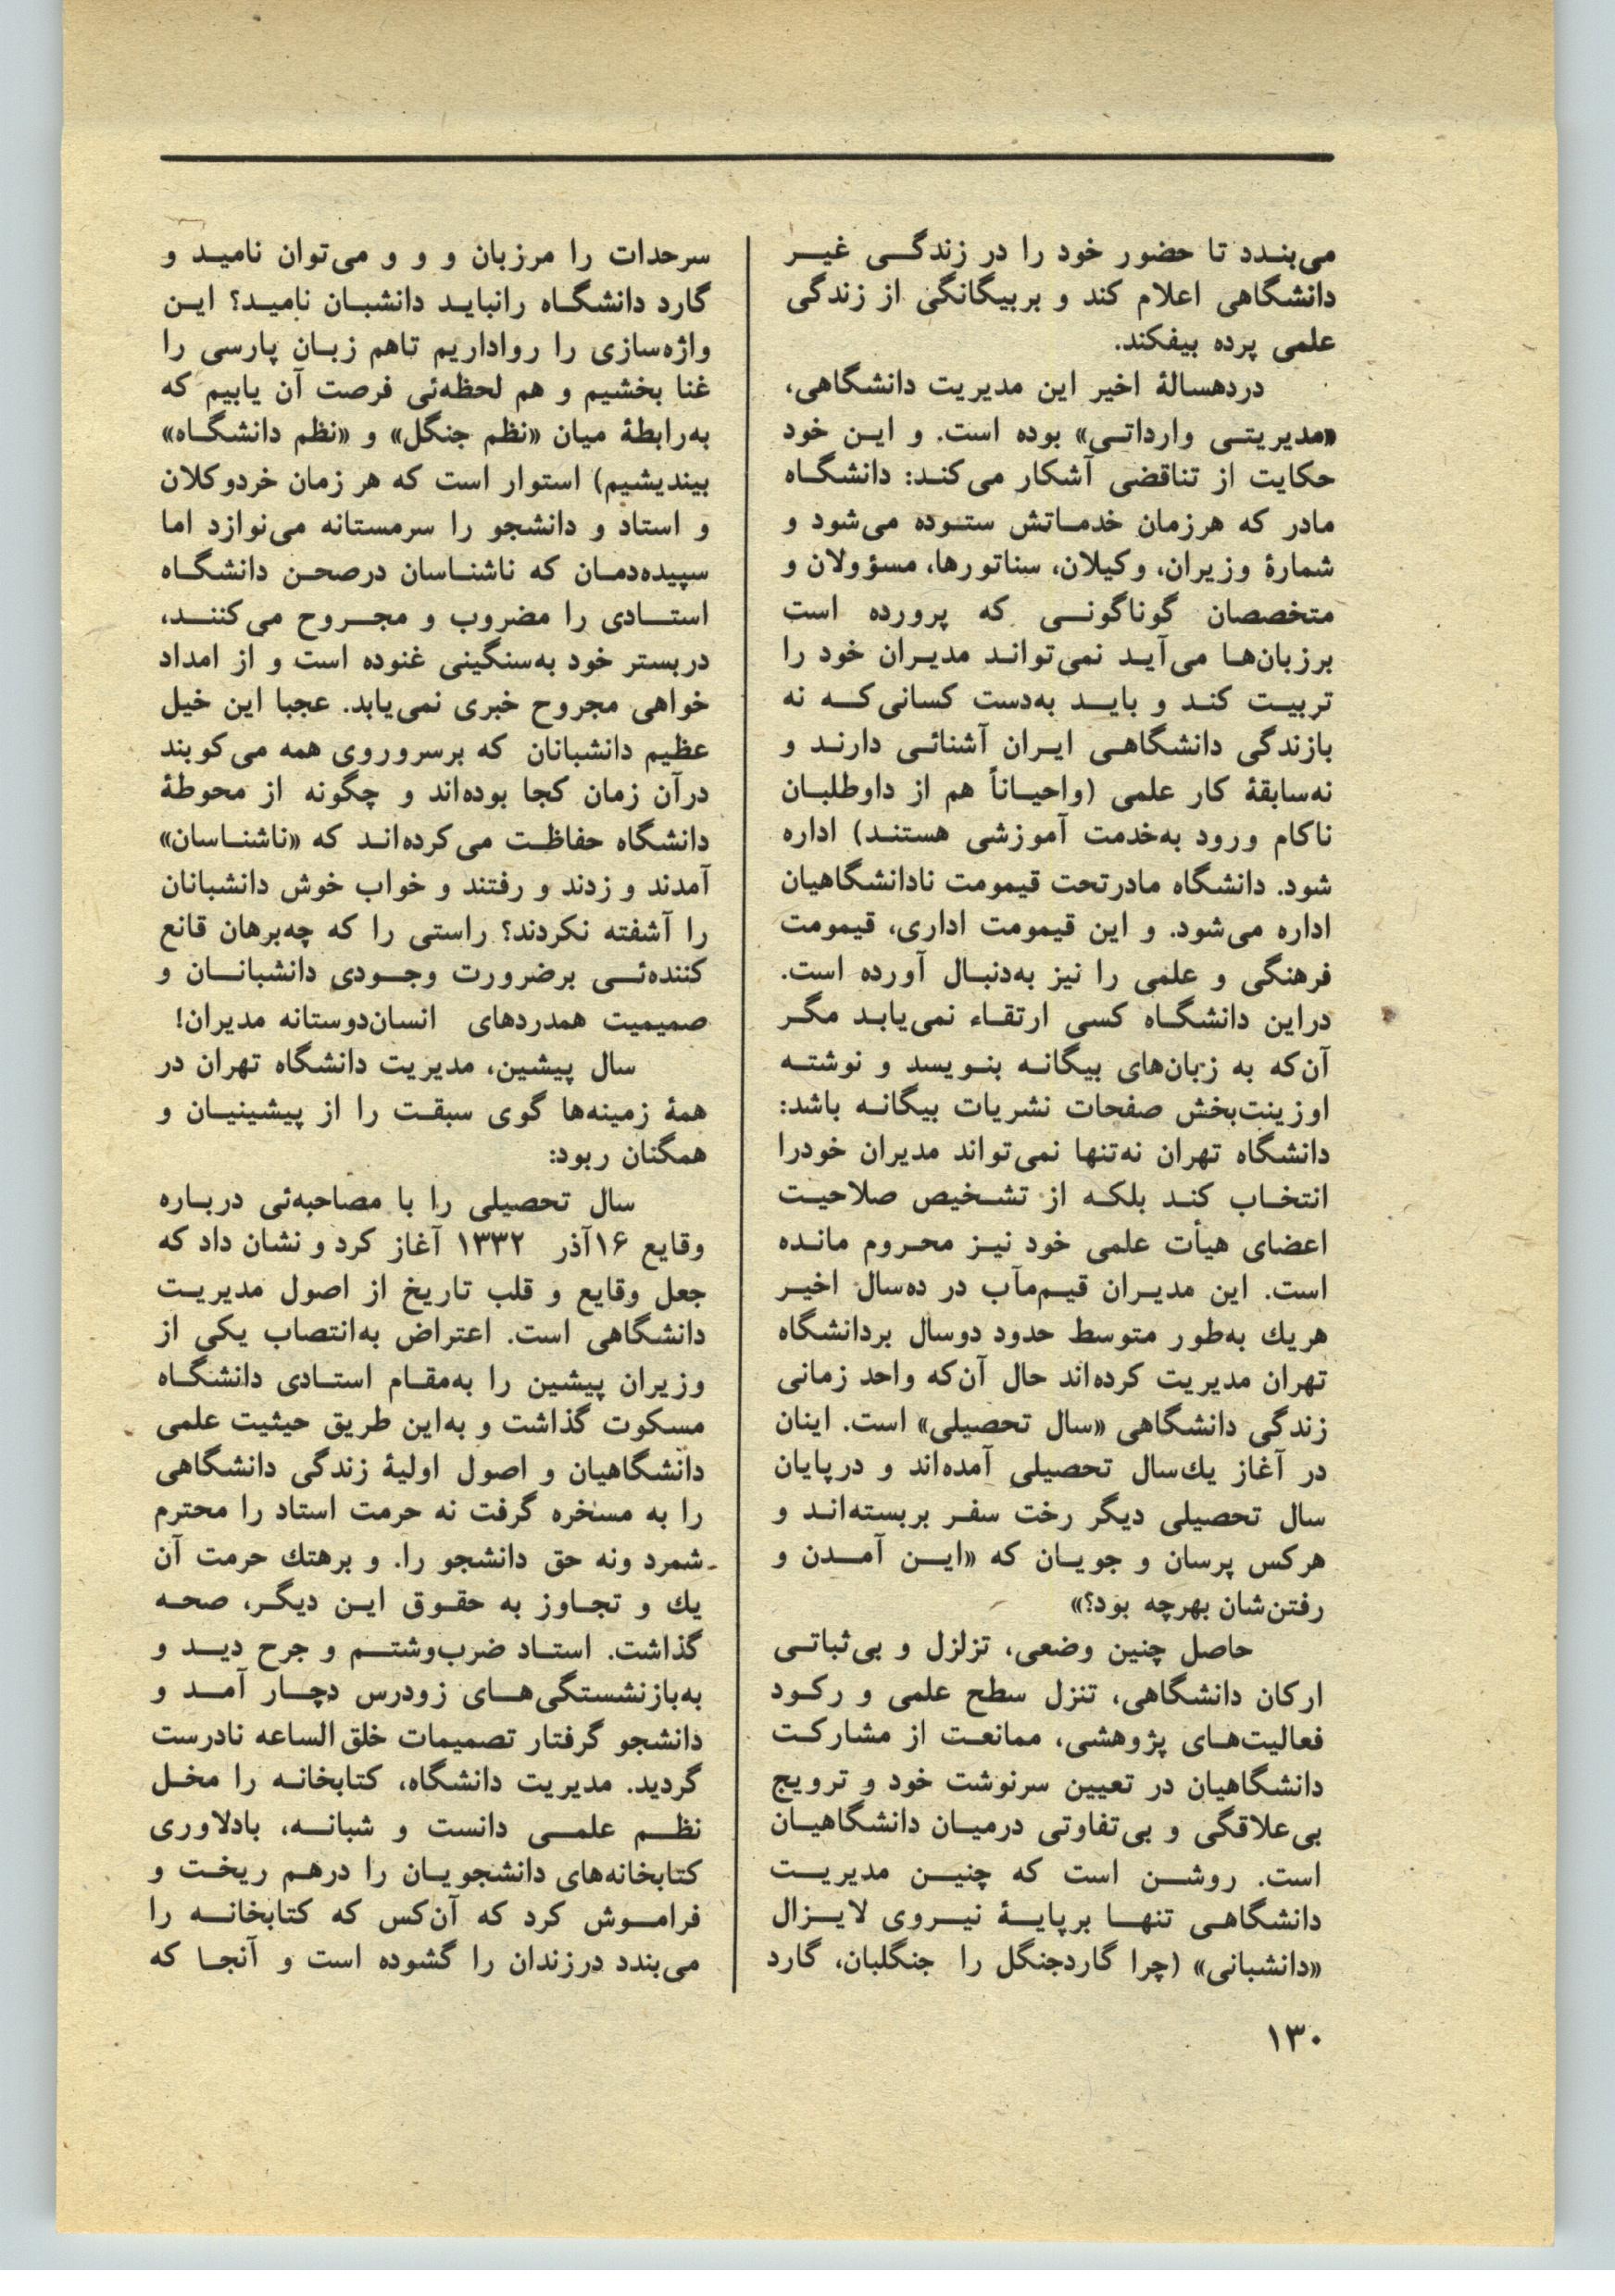 می‌بندد تا حضور خود را در زندگی غیر
دانشگاهی اعلام کند و بربیگانگی از زندگی
علمی پرده بیفکند.
دردهسالهٔ اخیر این مدیریت دانشگاهی،
«مدیریتی وارداتی» بوده است. و این خود
حکایت از تناقضی آشکار می‌کند: دانشگاه
مادر که هرزمان خدماتش ستوده می‌شود و
شمارهٔ وزیران، وکیلان، سناتورها، مسؤولان و
متخصصان گوناگونی که پرورده است
برزبان‌ها می‌آید نمی‌تواند مدیران خود را
تربیت کند و باید به‌دست کسانی‌که نه
بازندگی دانشگاهی ایران آشنائی دارند و
نه‌سابقهٔ کار علمی (واحیاناً هم از داوطلبان
ناکام ورود به‌خدمت آموزشی هستند) اداره
شود. دانشگاه مادرتحت قیمومت نادانشگاهیان
اداره می‌شود. و این قیمومت اداری، قیمومت
فرهنگی و علمی را نیز به‌دنبال آورده است.
دراین دانشگاه کسی ارتقاء نمی‌یابد مگر
آن‌که به زبان‌های بیگانه بنویسد و نوشته
اوزینت‌بخش صفحات نشریات بیگانه باشد:
دانشگاه تهران نه‌تنها نمی‌تواند مدیران خودرا
انتخاب کند بلکه از تشخیص صلاحیت
اعضای هیأت علمی خود نیز محروم مانده
است. این مدیران قیم‌مآب در ده‌سال اخیر
هریك به‌طور متوسط حدود دوسال بردانشگاه
تهران مدیریت کرده‌اند حال آن‌که واحد زمانی
زندگی دانشگاهی «سال تحصیلی» است. اینان
در آغاز یك‌سال تحصیلی آمده‌اند و درپایان
سال تحصیلی دیگر رخت سفر بربسته‌اند و
هرکس پرسان و جویان که «این آمدن و
رفتن‌شان بهرچه بود؟»
حاصل چنین وضعی، تزلزل و بی‌ثباتی
ارکان دانشگاهی، تنزل سطح علمی و رکود
فعالیت‌های پژوهشی، ممانعت از مشارکت
دانشگاهیان در تعیین سرنوشت خود و ترویج
بی‌علاقگی و بی‌تفاوتی درمیان دانشگاهیان
است. روشن است که چنین مدیریت
دانشگاهی تنها برپایهٔ نیروی لایزال
«دانشبانی» (چرا گاردجنگل را جنگلبان، گارد
سرحدات را مرزبان و و و می‌توان نامید و
گارد دانشگاه رانباید دانشبان نامید؟ این
واژه‌سازی را رواداریم تاهم زبان پارسی را
غنا بخشیم و هم لحظه‌ئی فرصت آن یابیم که
به‌رابطهٔ میان «نظم جنگل» و «نظم دانشگاه»
بیندیشیم) استوار است که هر زمان خردوکلان
و استاد و دانشجو را سرمستانه می‌نوازد اما
سپیده‌دمان که ناشناسان درصحن دانشگاه
استادی را مضروب و مجروح می‌کنند،
دربستر خود به‌سنگینی غنوده است و از امداد
خواهی مجروح خبری نمی‌یابد. عجبا این خیل
عظیم دانشبانان که برسروروی همه می‌کوبند
درآن زمان کجا بوده‌اند و چگونه از محوطهٔ
دانشگاه حفاظت می‌کرده‌اند که «ناشناسان»
آمدند و زدند و رفتند و خواب خوش دانشبانان
را آشفته نکردند؟ راستی را که چه‌برهان قانع
کننده‌ئی برضرورت وجودی دانشبانان و
صمیمیت همدردهای انسان‌دوستانه مدیران!
سال پیشین، مدیریت دانشگاه تهران در
همهٔ زمینه‌ها گوی سبقت را از پیشینیان و
همگنان ربود:
سال تحصیلی را با مصاحبه‌ئی درباره
وقایع ۱۶آذر ۱۳۳۲ آغاز کرد و نشان داد که
جعل وقایع و قلب تاریخ از اصول مدیریت
دانشگاهی است. اعتراض به‌انتصاب یکی از
وزیران پیشین را به‌مقام استادی دانشگاه
مسکوت گذاشت و به‌این طریق حیثیت علمی
دانشگاهیان و اصول اولیهٔ زندگی دانشگاهی
را به مسخره گرفت نه حرمت استاد را محترم
شمرد ونه حق دانشجو را. و برهتك حرمت آن
یك و تجاوز به حقوق این دیگر، صحه
گذاشت. استاد ضرب‌وشتم و جرح دید و
به‌بازنشستگی‌های زودرس دچار آمد و
دانشجو گرفتار تصمیمات خلق‌الساعه نادرست
گردید. مدیریت دانشگاه، کتابخانه را مخل
نظم علمی دانست و شبانه، بادلاوری
کتابخانه‌های دانشجویان را درهم ریخت و
فراموش کرد که آن‌کس که کتابخانه را
می‌بندد درزندان را گشوده است و آنجا که
۱۳۰